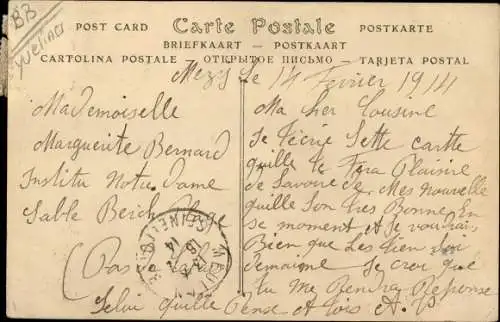 BB
Yvelines
POST CARD Carte Postale POSTKARTE
BRIEFKAART — POSTKAART
CARTOLINA POSTALE — ОТКРЫТОЕ ПИСЬМО — TARJETA POSTAL
Mezy le 14 Fevrier 1914
Mademoiselle
Marguerite Bernard
Institu Notre Dame
Sable Berck Plage
(Pas de
Ma Cher Cousine
Je técrie Sette cartte
quille te Fera Plaisire
de Savoire de Mes Nouvelle
quille Son tres Bonne En
se moment et Je voudrais
Bien que Les tien Son
de maime Je croi que
tu Me Rendra Reponse
Selui quille Pense a tois A.V